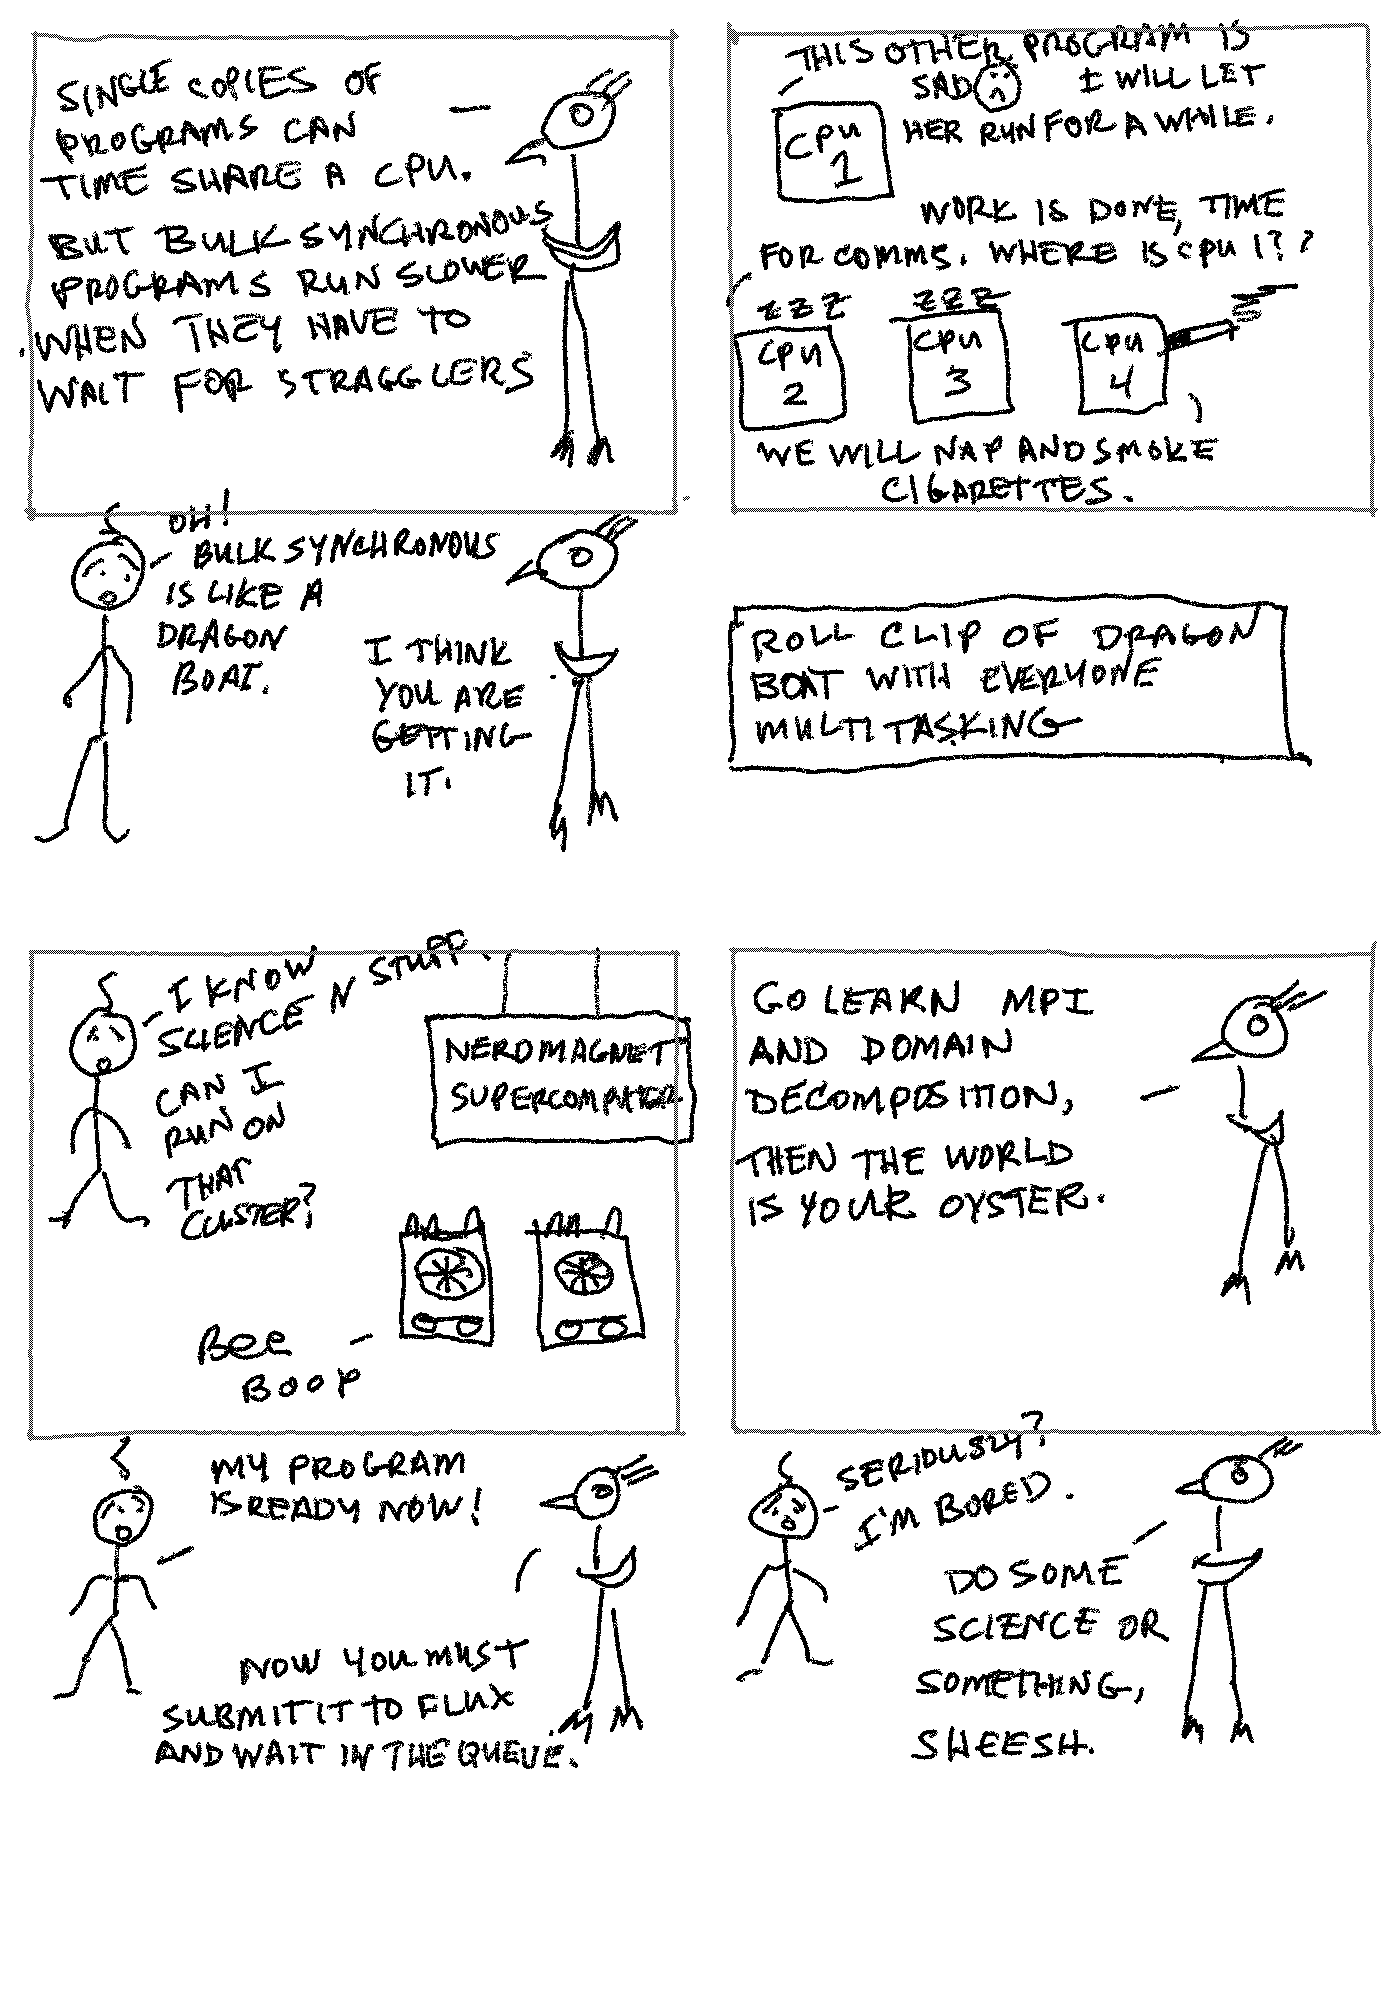 SINGLE COPIES OF
PROGRAMS CAN
TIME SHARE A CPU.
BUT BULK SYNCHRONOUS
PROGRAMS RUN SLOWER
WHEN THEY HAVE TO
WAIT FOR STRAGGLERS
THIS OTHER PROGRAM IS
SAD I WILL LET
HER RUN FOR A WHILE.
CPU
1
WORK IS DONE, TIME
FOR COMMS. WHERE IS CPU 1??
ZZZ
ZZZ
CPU
2
CPU
3
CPU
4
WE WILL NAP AND SMOKE
CIGARETTES.
OH!
BULK SYNCHRONOUS
IS LIKE A
DRAGON
BOAT.
I THINK
YOU ARE
GETTING
IT.
ROLL CLIP OF DRAGON
BOAT WITH EVERYONE
MULTITASKING
I KNOW
SCIENCE N STUFF.
CAN I
RUN ON
THAT
CULSTER?
NERDMAGNET
SUPERCOMPUTER
BEE
BOOP
GO LEARN MPI
AND DOMAIN
DECOMPOSITION,
THEN THE WORLD
IS YOUR OYSTER.
MY PROGRAM
IS READY NOW!
NOW YOU MUST
SUBMIT IT TO FLUX
AND WAIT IN THE QUEUE.
SERIOUSLY?
I'M BORED.
DO SOME
SCIENCE OR
SOMETHING,
SHEESH.